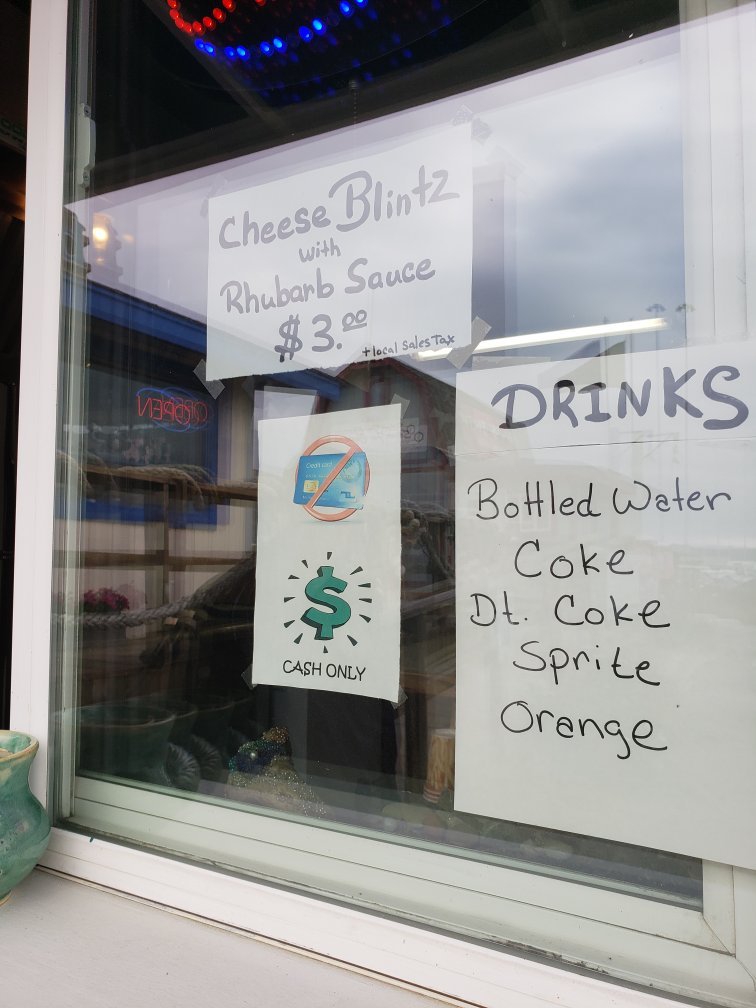 Cheese Blintz
with
Rhubarb Sauce
$3.00
+ local Sales Tax
OPEN
Credit card
$
CASH ONLY
DRINKS
Bottled Water
Coke
Dt. Coke
Sprite
Orange